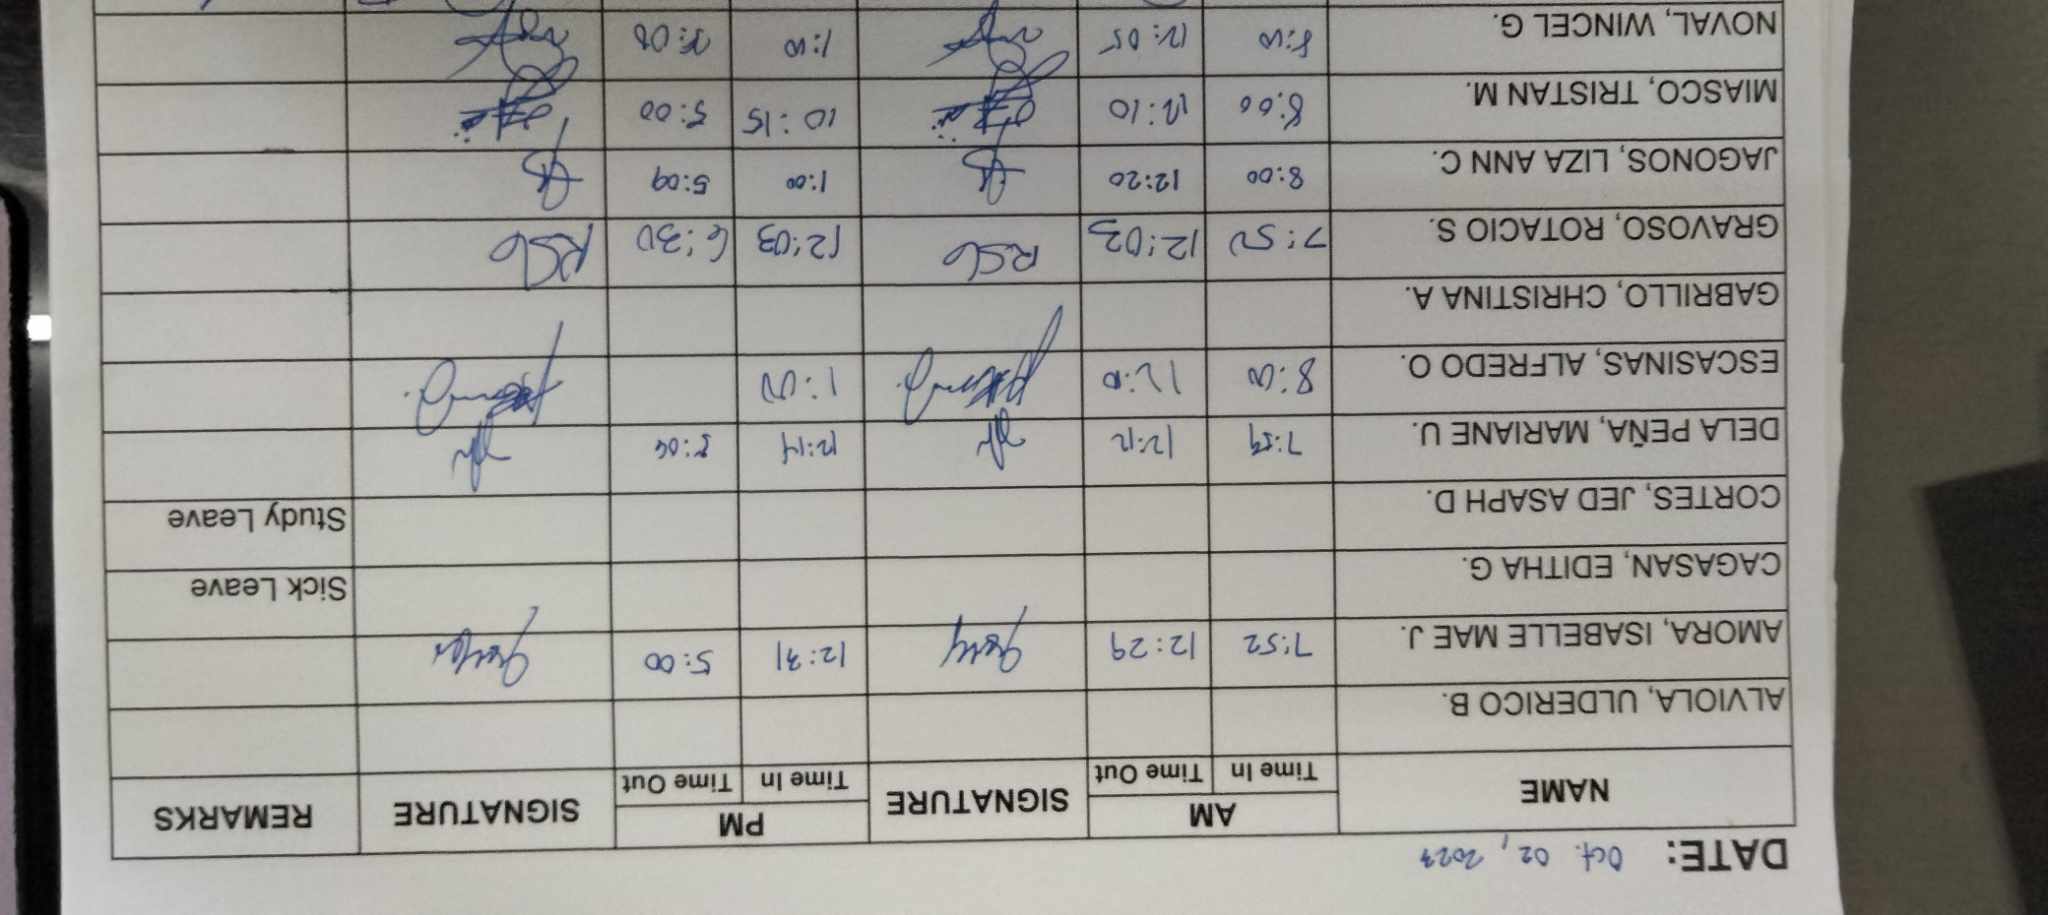 DATE: Oct. 02, 2023
NAME AM SIGNATURE PM SIGNATURE REMARKS
Time In Time Out Time In Time Out
ALVIOLA, ULDERICO B.
AMORA, ISABELLE MAE J. 7:52 12:29 12:31 5:00
CAGASAN, EDITHA G. Sick Leave
CORTES, JED ASAPH D. Study Leave
DELA PEÑA, MARIANE U. 7:59 12:12 12:14 5:04
ESCASINAS, ALFREDO O. 8:00 12:10 1:00
GABRILLO, CHRISTINA A.
GRAVOSO, ROTACIO S. 7:50 12:03 RSG 12:03 6:30 RSG
JAGONOS, LIZA ANN C. 8:00 12:20 1:00 5:09
MIASCO, TRISTAN M. 8:00 12:10 10:15 5:00
NOVAL, WINCEL G. 8:10 12:05 1:10